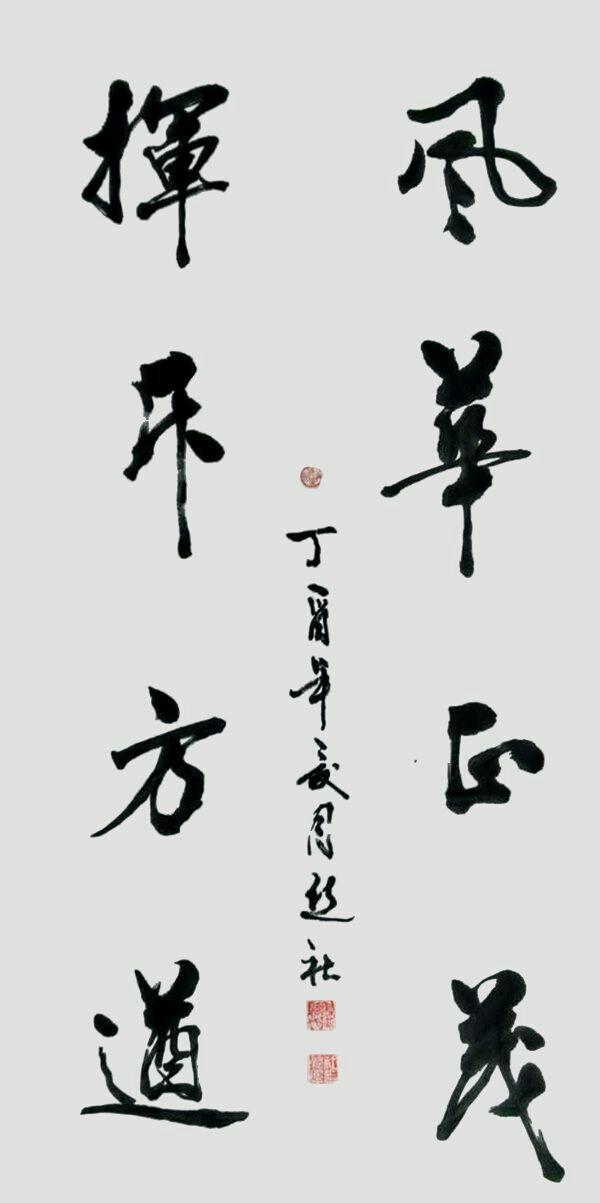 風華正茂
揮斥方遒
丁酉年周社